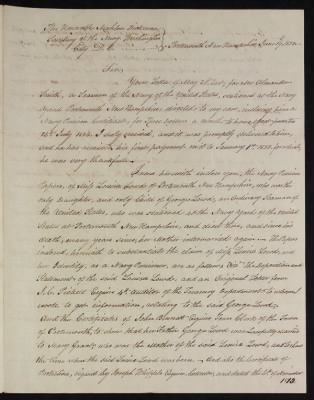 The Honorable Mahlon Dickerson
Secretary of the Navy, Washington
City D. C. Portsmouth New Hampshire June
Sir,
Your Letter of May for me Alexander
Smith, a Seaman of the Navy of the United States, stationed at the Navy
Yard Portsmouth New Hampshire directed to my care, enclosing him a
Navy Pension Certificate, for dollars a month to have effect from the
July 1834. I duly received, and it was promptly delivered to him,
and he has received his first payment up to January 1st for which
he was very thankful.
I now herewith enclose you, the Navy Pension
Papers, of Miss Louisa Lord of Portsmouth New Hampshire, who was the
only Daughter, and only Child of George Lord, an Ordinary Seaman of
the United States, who was stationed at the Navy Yard of the united
States at Portsmouth New Hampshire, and died there, and since his
death, many years since, her Mother intermarried again. The Papers
inclosed, herewith to substantiate the claim of Miss Louisa Lord, and
her Guardian, as a Navy Pensioner, are as follows Viz. The Deposition and
Statement of the said Louisa Lord, and an Original Letter from
J. C. Pickett Esquire 4th Auditor of the Treasury Department to whom I
wrote to get information, relating to the said George Lord,
And the Certificate of John Bennett Esquire Town Clerk of the Town
of Portsmouth, to shew that her Father George Lord was Lawfully married
to Mary Grant, who was the Mother of the said Louisa Lord, and also
the time when the said Louisa Lord was born. And also the Certificate of
Protection, signed by Joseph Whipple Esquire Collector, and dated the of November